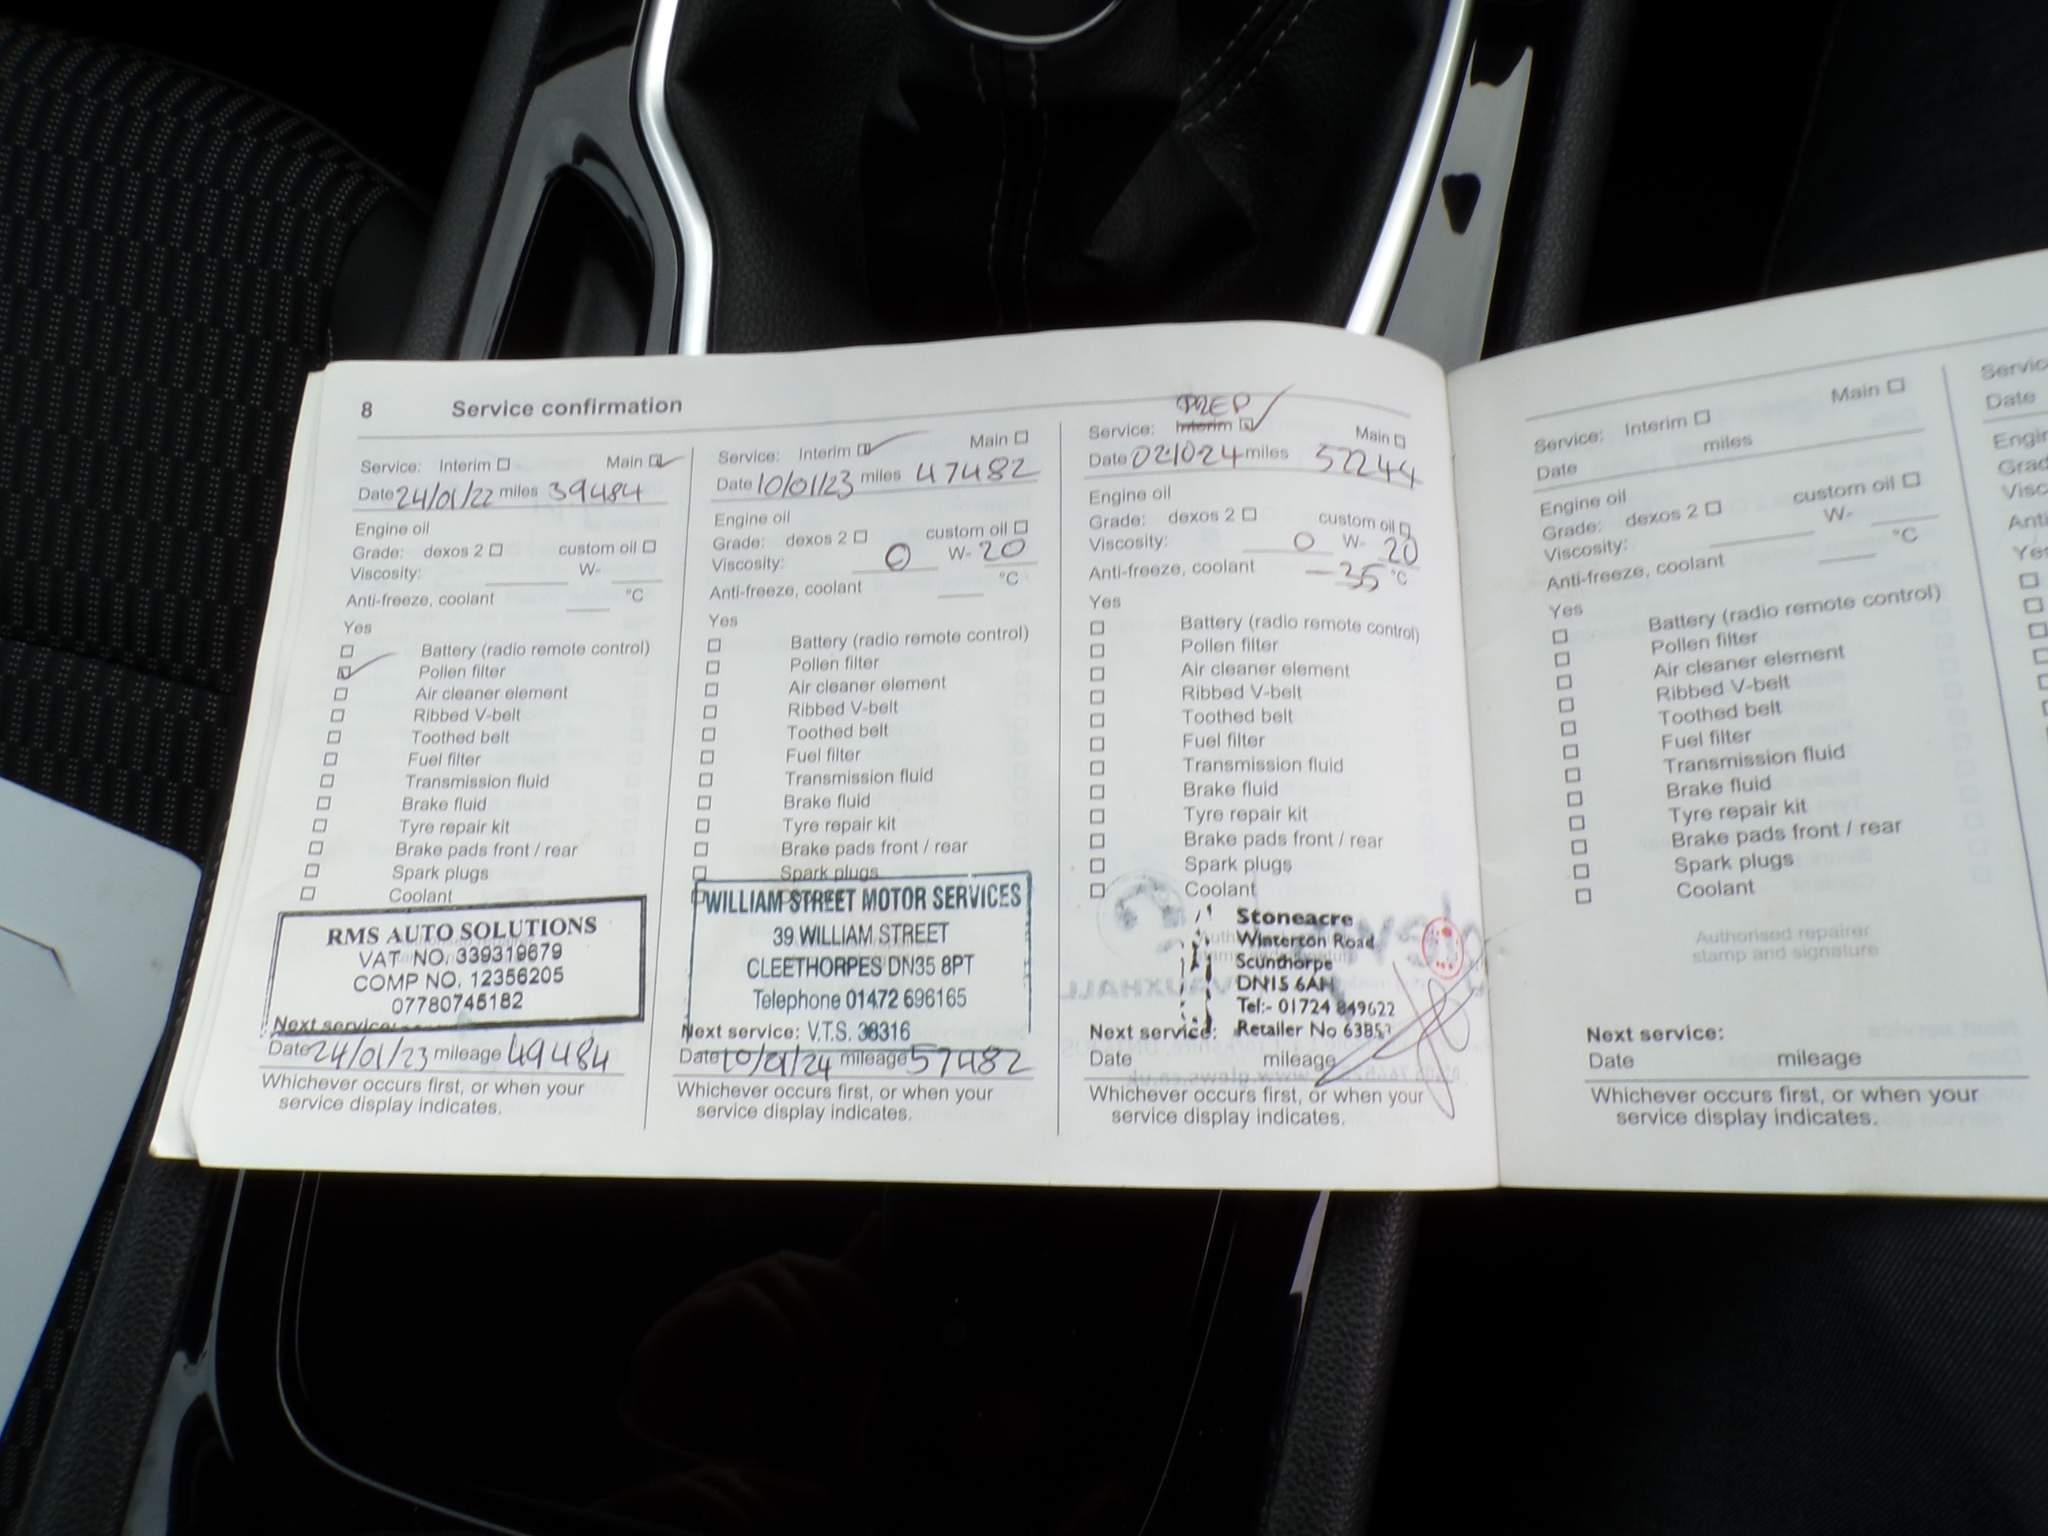 8 Service confirmation
Service: Interim Main
Date 24/01/22 miles 39484
Engine oil
Grade: dexos 2 custom oil
Viscosity: W-
Anti-freeze, coolant °C
Yes
Battery (radio remote control)
Pollen filter
Air cleaner element
Ribbed V-belt
Toothed belt
Fuel filter
Transmission fluid
Brake fluid
Tyre repair kit
Brake pads front / rear
Spark plugs
Coolant
RMS AUTO SOLUTIONS
VAT NO. 339319679
COMP NO. 12356205
07780745182
Next service:
Date 24/01/23 mileage 49484
Whichever occurs first, or when your
service display indicates.
Service: Interim Main
Date 10/01/23 miles 47482
Engine oil
Grade: dexos 2 custom oil
Viscosity: 0 W- 20
Anti-freeze, coolant °C
Yes
Battery (radio remote control)
Pollen filter
Air cleaner element
Ribbed V-belt
Toothed belt
Fuel filter
Transmission fluid
Brake fluid
Tyre repair kit
Brake pads front / rear
Spark plugs
WILLIAM STREET MOTOR SERVICES
39 WILLIAM STREET
CLEETHORPES DN35 8PT
Telephone 01472 696165
Next service: V.T.S. 38316
Date 10/01/24 mileage 57482
Whichever occurs first, or when your
service display indicates.
PREP
Service: Interim Main
Date 02.10.24 miles 52244
Engine oil
Grade: dexos 2 custom oil
Viscosity: 0 W- 20
Anti-freeze, coolant -35 °C
Yes
Battery (radio remote control)
Pollen filter
Air cleaner element
Ribbed V-belt
Toothed belt
Fuel filter
Transmission fluid
Brake fluid
Tyre repair kit
Brake pads front / rear
Spark plugs
Coolant
Stoneacre
Winterton Road
Scunthorpe
DN15 6AH
Tel:- 01724 849622
Next service: Retailer No
Date mileage
Whichever occurs first, or when your
service display indicates.
Service: Interim Main
Date miles
Engine oil
Grade: dexos 2 custom oil
Viscosity: W-
Anti-freeze, coolant °C
Yes
Battery (radio remote control)
Pollen filter
Air cleaner element
Ribbed V-belt
Toothed belt
Fuel filter
Transmission fluid
Brake fluid
Tyre repair kit
Brake pads front / rear
Spark plugs
Coolant
Authorised repairer
stamp and signature
Next service:
Date mileage
Whichever occurs first, or when your
service display indicates.
Date